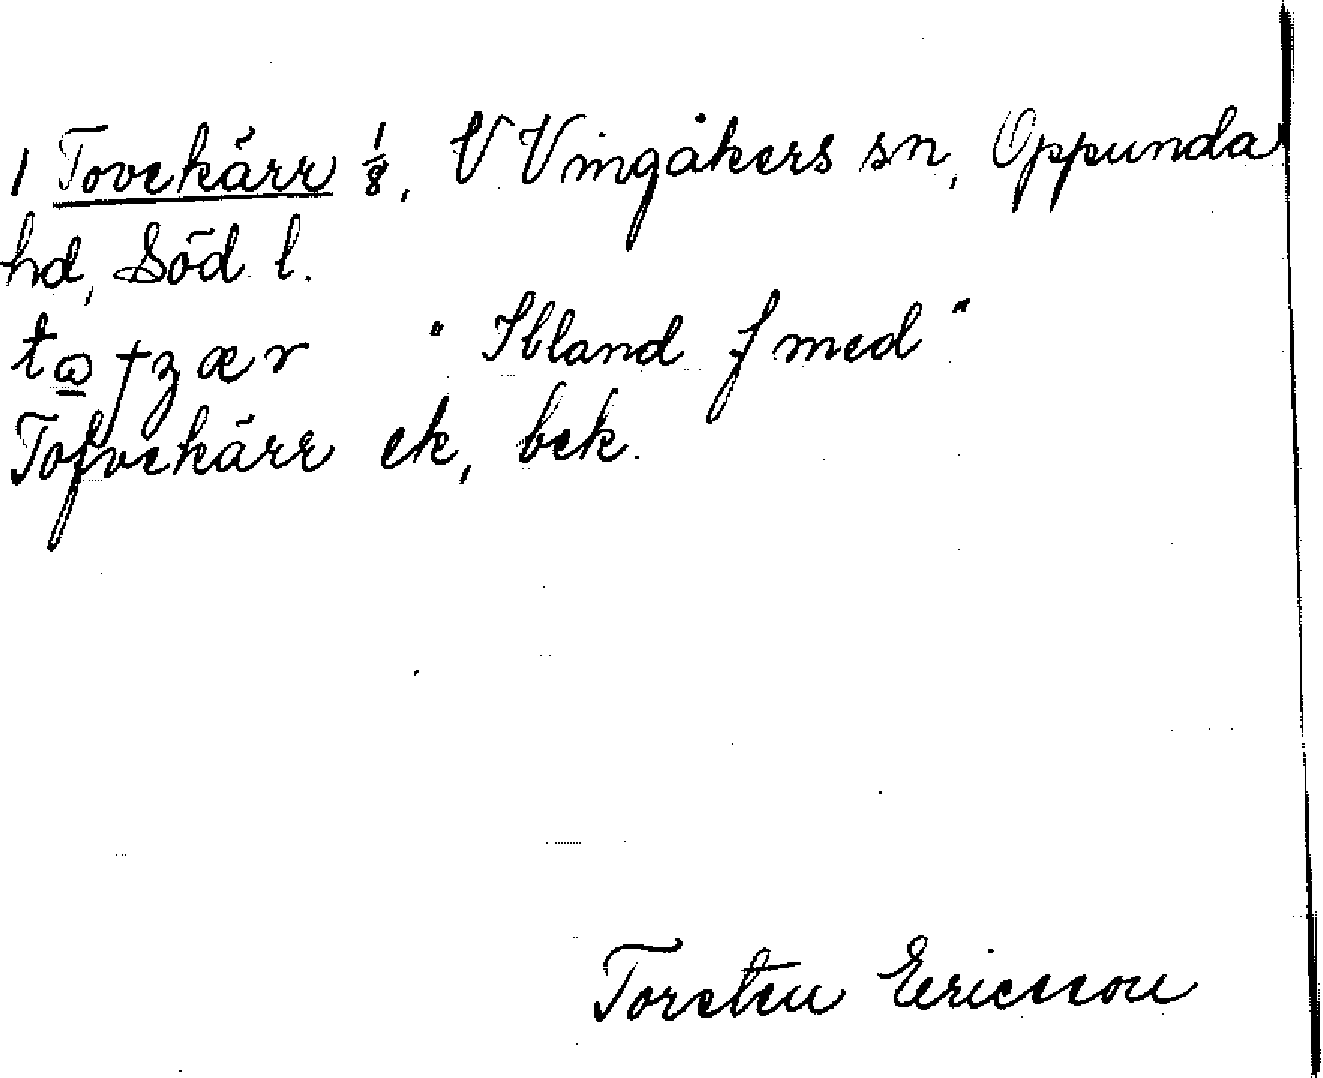 1 Tovekärr 1/8, V Vingåkers sn, Oppunda
hd, Söd. l.
"Ibland f med"
Tofvekärr ek, bek.
Torsten Ericsson